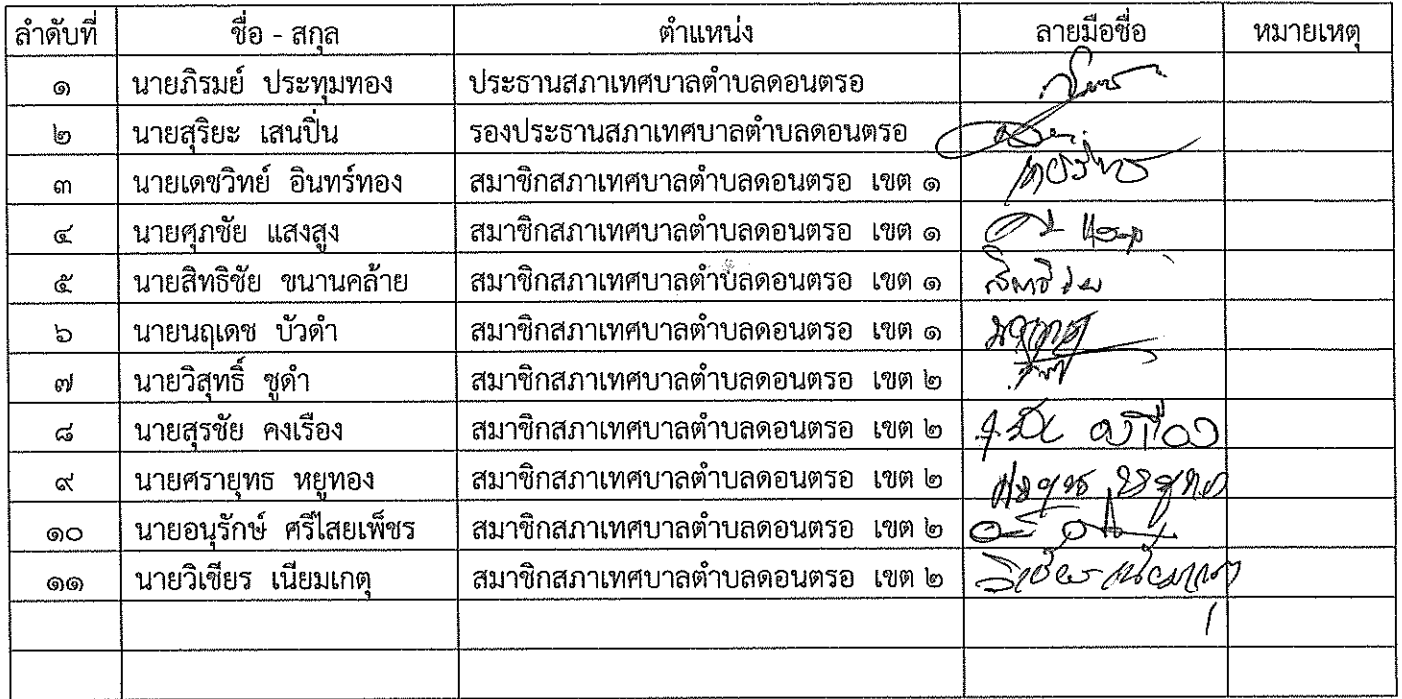 ลำดับที่ ชื่อ - สกุล ตำแหน่ง ลายมือชื่อ หมายเหตุ
๑ นายภิรมย์ ประทุมทอง ประธานสภาเทศบาลตำบลดอนตรอ
๒ นายสุริยะ เสนปิ่น รองประธานสภาเทศบาลตำบลดอนตรอ
๓ นายเดชวิทย์ อินทร์ทอง สมาชิกสภาเทศบาลตำบลดอนตรอ เขต ๑
๔ นายศุภชัย แสงสูง สมาชิกสภาเทศบาลตำบลดอนตรอ เขต ๑
๕ นายสิทธิชัย ขนานคล้าย สมาชิกสภาเทศบาลตำบลดอนตรอ เขต ๑ สิทธิชัย
๖ นายนฤเดช บัวดำ สมาชิกสภาเทศบาลตำบลดอนตรอ เขต ๑
๗ นายวิสุทธิ์ ชูดำ สมาชิกสภาเทศบาลตำบลดอนตรอ เขต ๒
๘ นายสุรชัย คงเรือง สมาชิกสภาเทศบาลตำบลดอนตรอ เขต ๒
๙ นายศรายุทธ หยูทอง สมาชิกสภาเทศบาลตำบลดอนตรอ เขต ๒
๑๐ นายอนุรักษ์ ศรีไสยเพ็ชร สมาชิกสภาเทศบาลตำบลดอนตรอ เขต ๒
๑๑ นายวิเชียร เนียมเกตุ สมาชิกสภาเทศบาลตำบลดอนตรอ เขต ๒ วิเชียร เนียมเกตุ